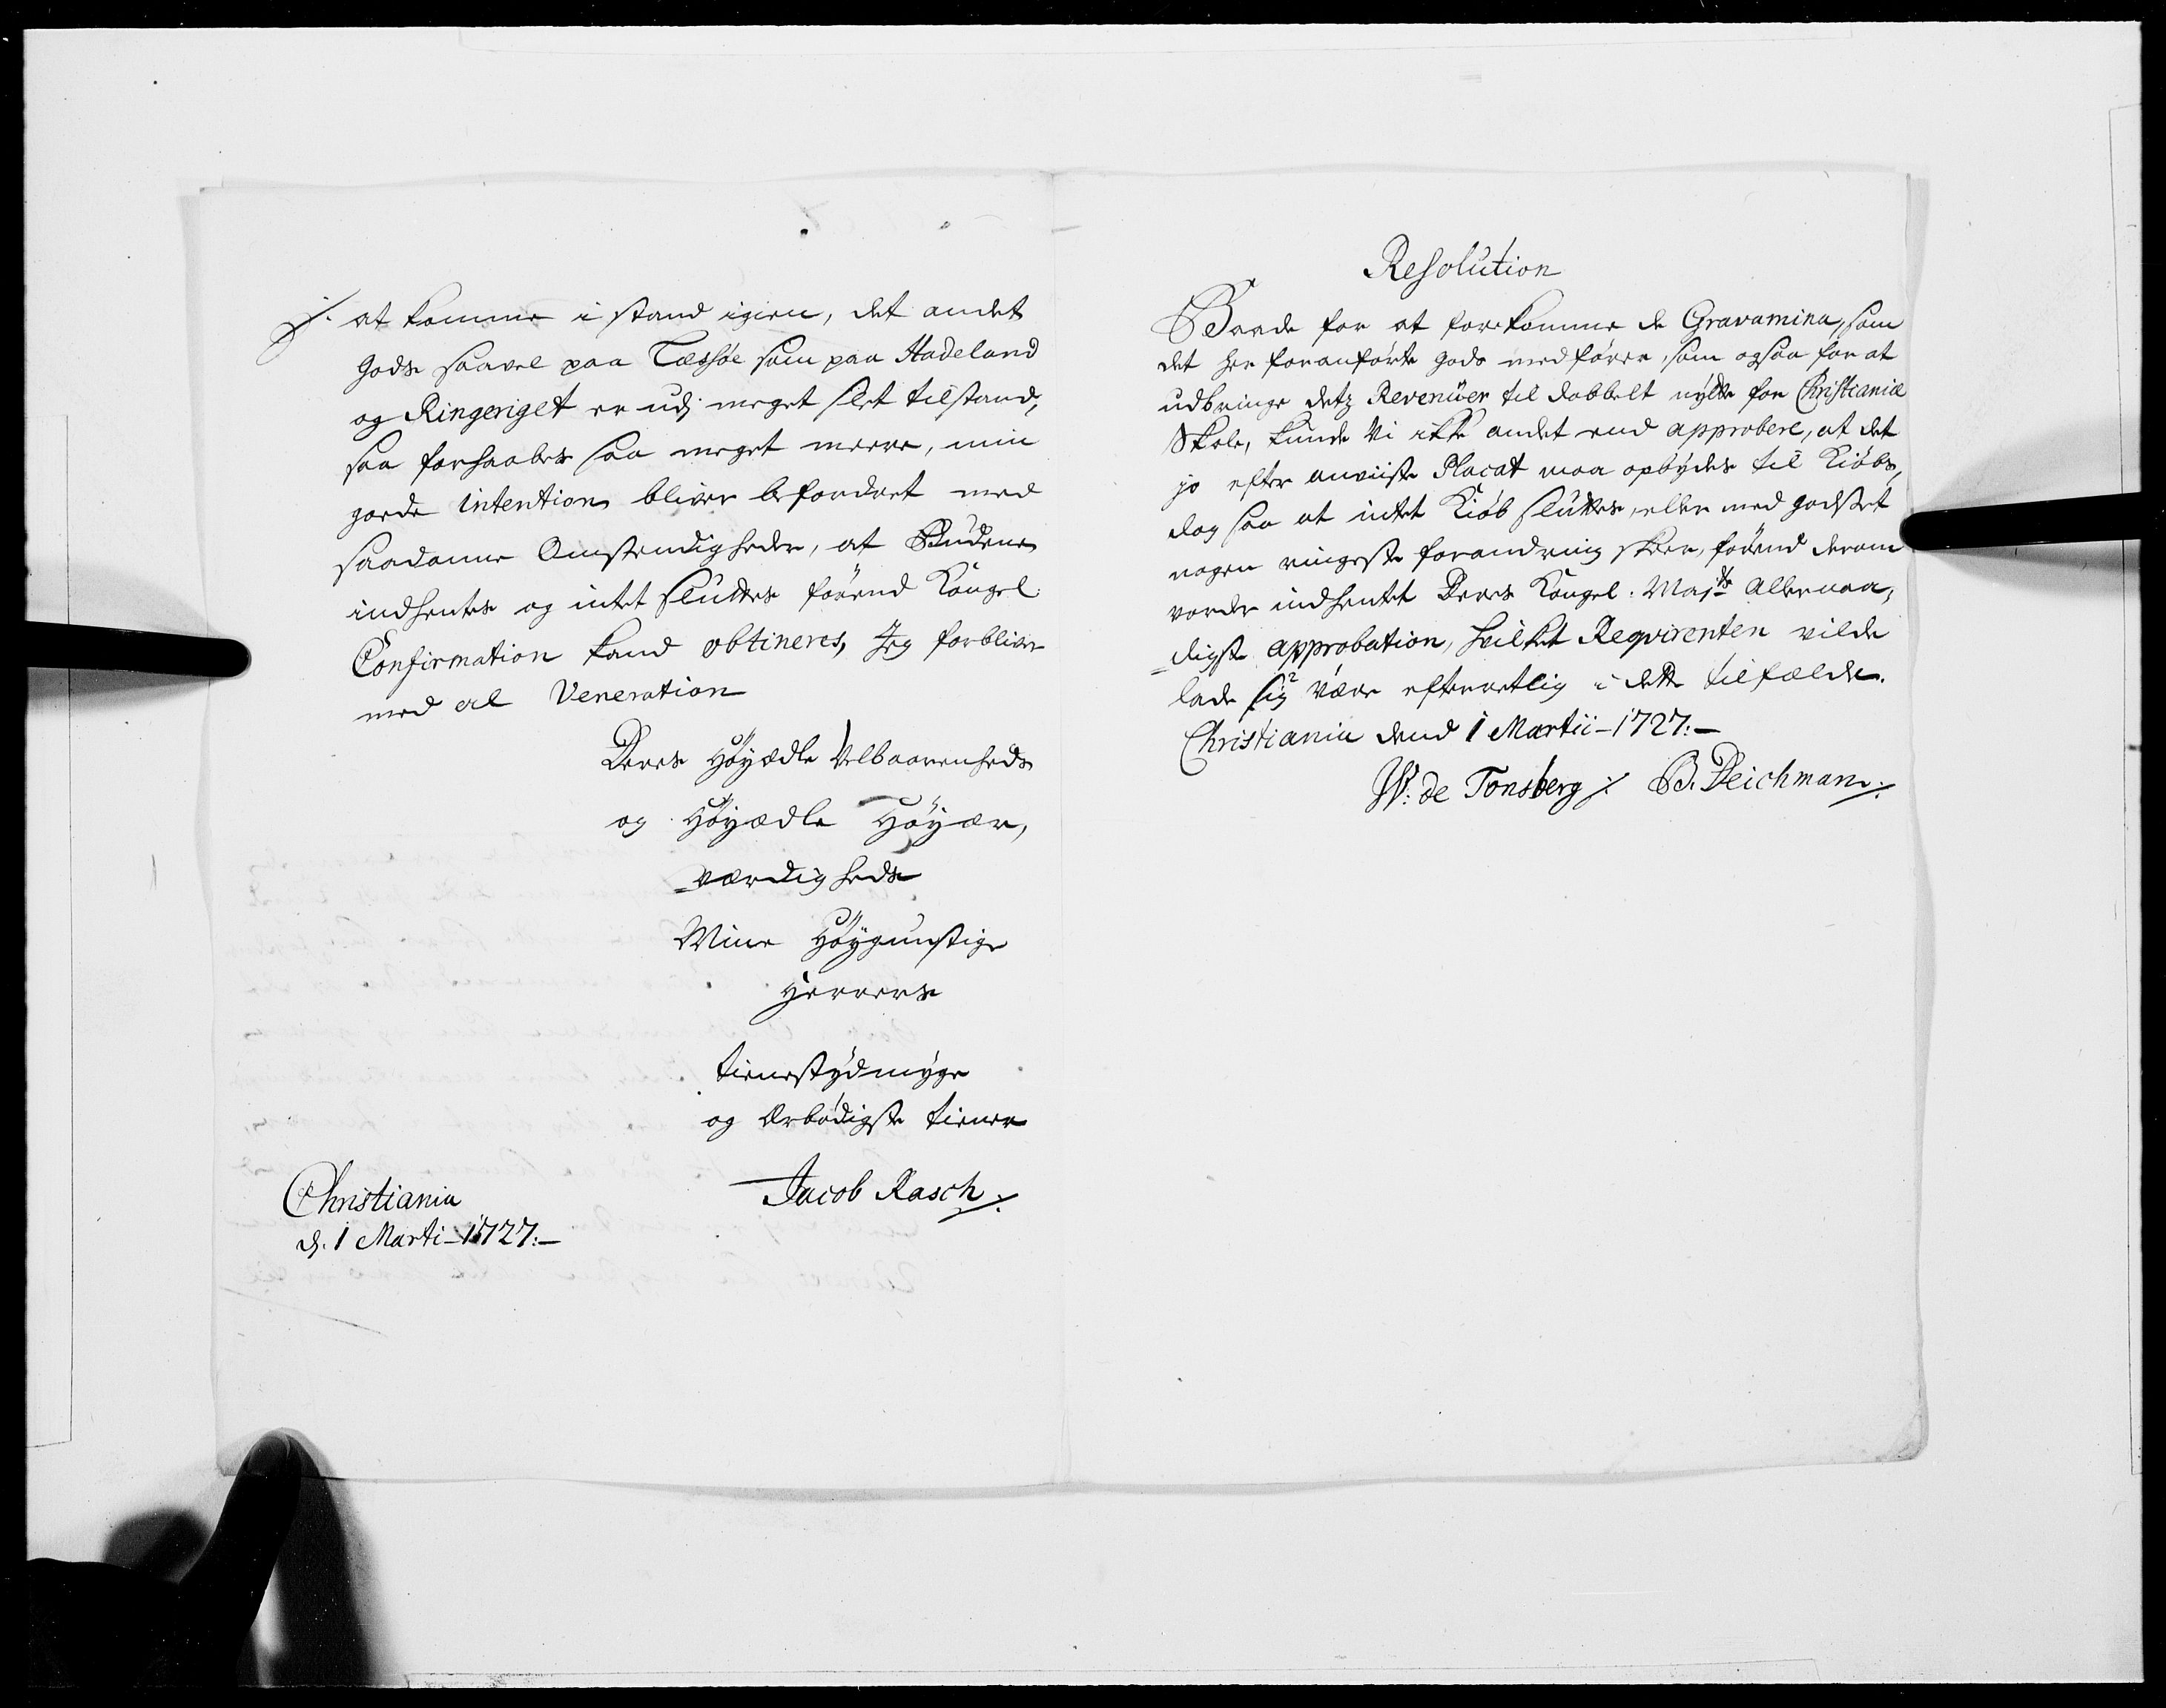 at komme i stand igien, det andet
Gods saavel paa Tæssøe som paa Hadeland
og Ringeriget er udj meget slet tilstand,
saa forhaabes saa meget meere, min
goede intention bliver befordret med
saadanne Omstendigheder, at Budene
indhentes og intet sluttes förend Kongel.
Confirmation kand obtineres, Jeg forbliver
med al Veneration
Deres Höyædle Velbaarenheds
og Höyædle Höyær,
værdigheds
Mine Höygunstige
Herrers
tienestydmyge
og Ærbödigste tiener
Jacob Rasch ./.
Christiania
d. 1 Marti - 1727:-
Resolution
Baade for at forekomme de Gravamina, som
det her foranförte gods medförer, som ogsaa for at
udbringe detz Revenüer til dobbelt nytte for Christianiæ
Skole, kunde Vi ikke andet end approbere, at det
jo efter anviiste Placat maa opbydes til Kiöbs,
dog saa at intet Kiöb sluttes, eller med godset
nogen ringeste forandring skeer, förend derom
vorder indhentet Deres Kongel. Majts Allernaa,
digste approbation, hvilket Reqvirenten vilde
lade sig være efterretlig i dette tilfælde.
Christiania dend 1 Martii - 1727:-
W: de Tonsberg ./. B. Deichman ./.